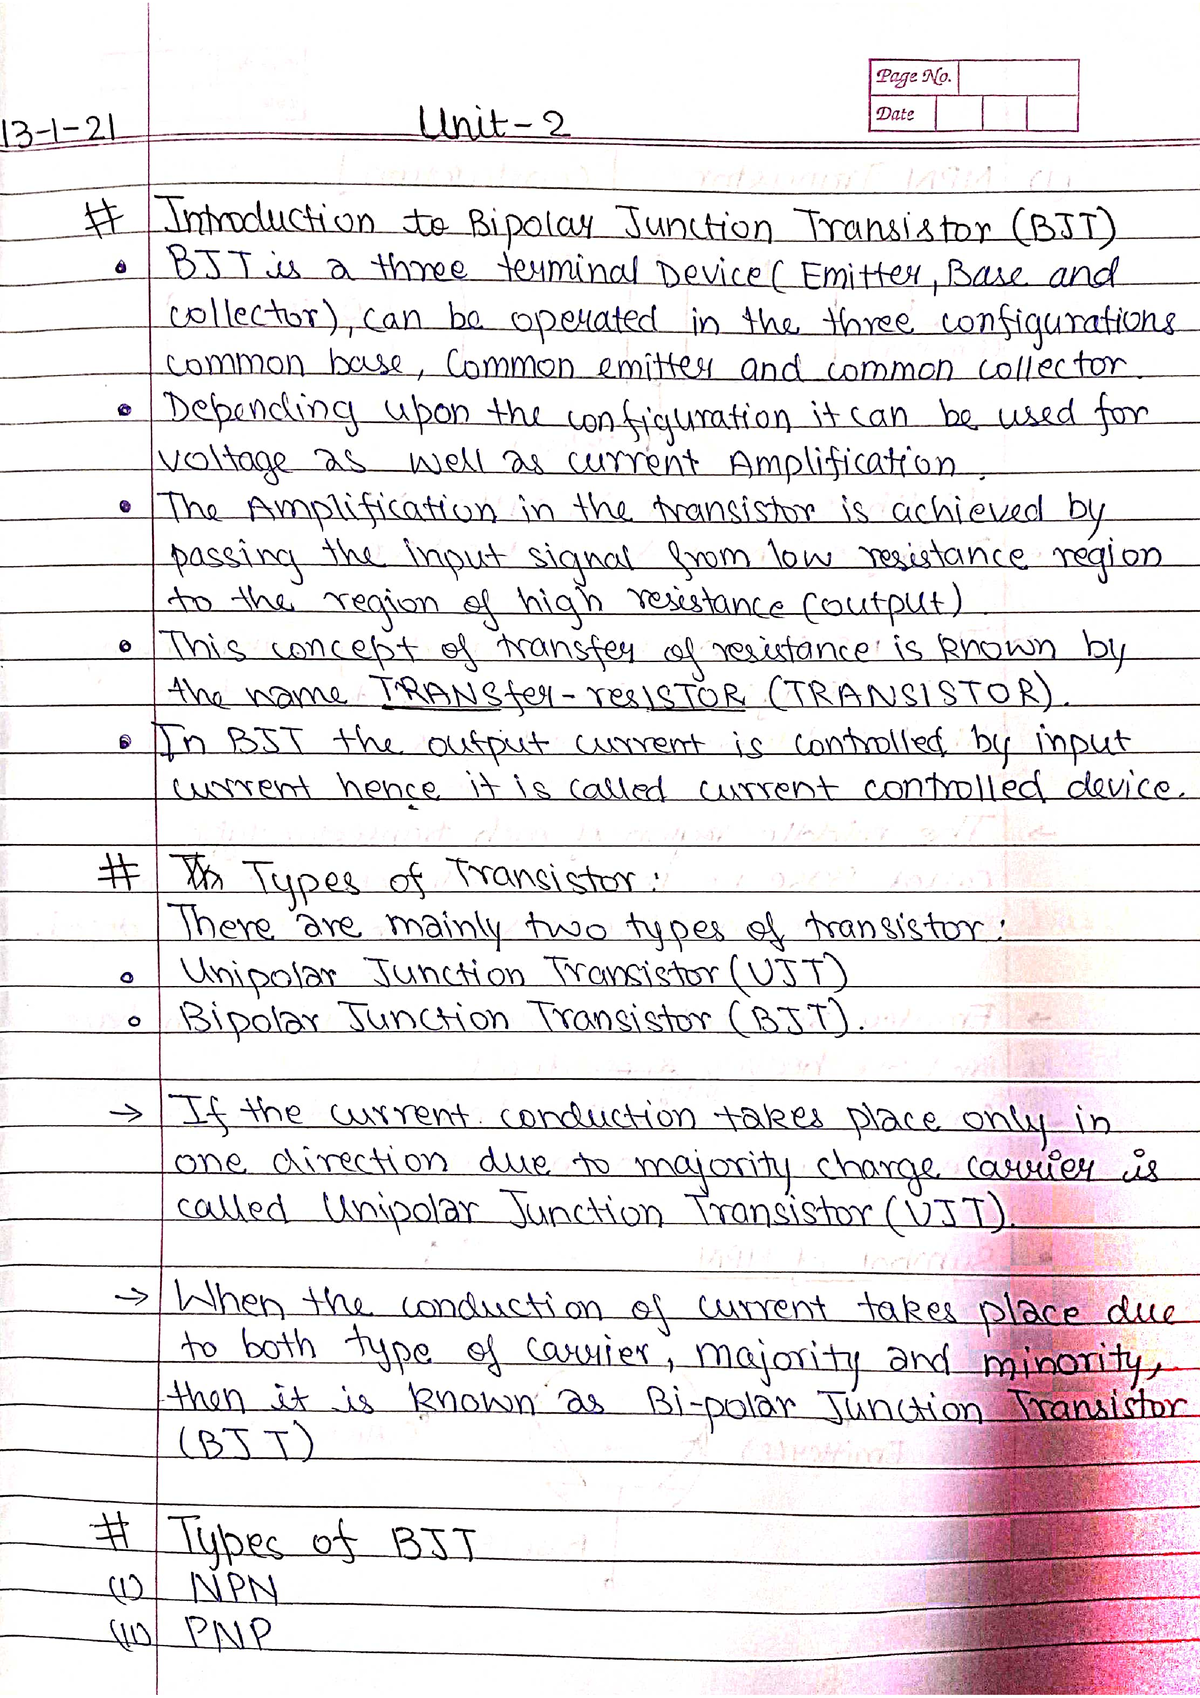 Page No.
Date
13-1-21 Unit-2
# Introduction to Bipolar Junction Transistor (BJT)
• BJT is a three terminal Device (Emitter, Base and
collector), can be operated in the three configurations
common base, Common emitter and common collector.
• Depending upon the configuration it can be used for
voltage as well as current Amplification.
• The Amplification in the transistor is achieved by
passing the input signal from low resistance region
to the region of high resistance (output)
• This concept of transfer of resistance is known by
the name TRANSfer-resISTOR (TRANSISTOR).
• In BJT the output current is controlled by input
current hence it is called current controlled device.
# Types of Transistor:
There are mainly two types of transistor:
• Unipolar Junction Transistor (UJT)
• Bipolar Junction Transistor (BJT).
→ If the current conduction takes place only in
one direction due to majority charge carrier is
called Unipolar Junction Transistor (UJT).
→ When the conduction of current takes place due
to both type of carrier, majority and minority,
then it is known as Bi-polar Junction Transistor
(BJT)
# Types of BJT
(I) NPN
(II) PNP